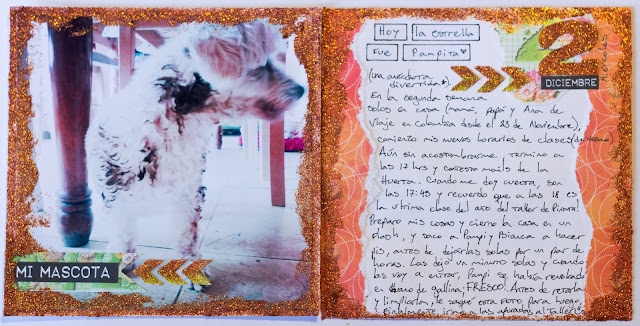 MI MASCOTA
Hoy la estrella
Fue Pampita
2
DICIEMBRE
Miércoles
(una anécdota
divertida)
En la segunda semana
solos en casa (mamá, papá y Ana de
viaje en Colombia desde el 23 de Noviembre),
comienzo mis nuevos horarios de clases (de verano)
Aún sin acostumbrarme, termino a
las 17 hrs y contesto mails de la
Huerta. Cuando me doy cuenta, son
las 17:45 y recuerdo que a las 18 es
la última clase del año del Taller de
Preparo mis cosas y cierro la casa en un
flash, y saco a Pampi y Bianca a hacer
pis, antes de dejarlas solas por un par de
horas. Las dejo un minuto solas y cuando
las voy a entrar, Pampi se había revolcado
en guano de gallina, FRESCO. Antes de retarla
y limpiarla, le saqué esta foto para luego,
finalmente irme a las apuradas al Taller